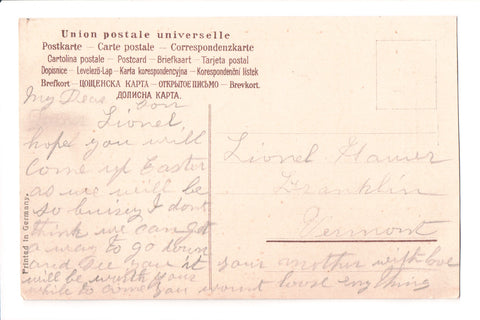 Union postale universelle
Postkarte – Carte postale – Correspondenzkarte
Cartolina postale – Postcard – Briefkaart – Tarjeta postal
Dopisnice – Levelező-Lap – Karta korespondencyjna – Korespondenční lístek
Brefkort – ЦОЩЕНСКА КАРТА – ОТКРЫТОЕ ПИСЬМО – Brevkort.
ДОПИСНА КАРТА.
My Dear Son
Lionel,
hope you will
come up Easter
as we will be
so buisey I dont
think we can get
away to go down
and see you it
will be worth your
while to come you wount loose enything
your mother with love
Lionel Hamer
Franklin
Vermont
Printed in Germany.